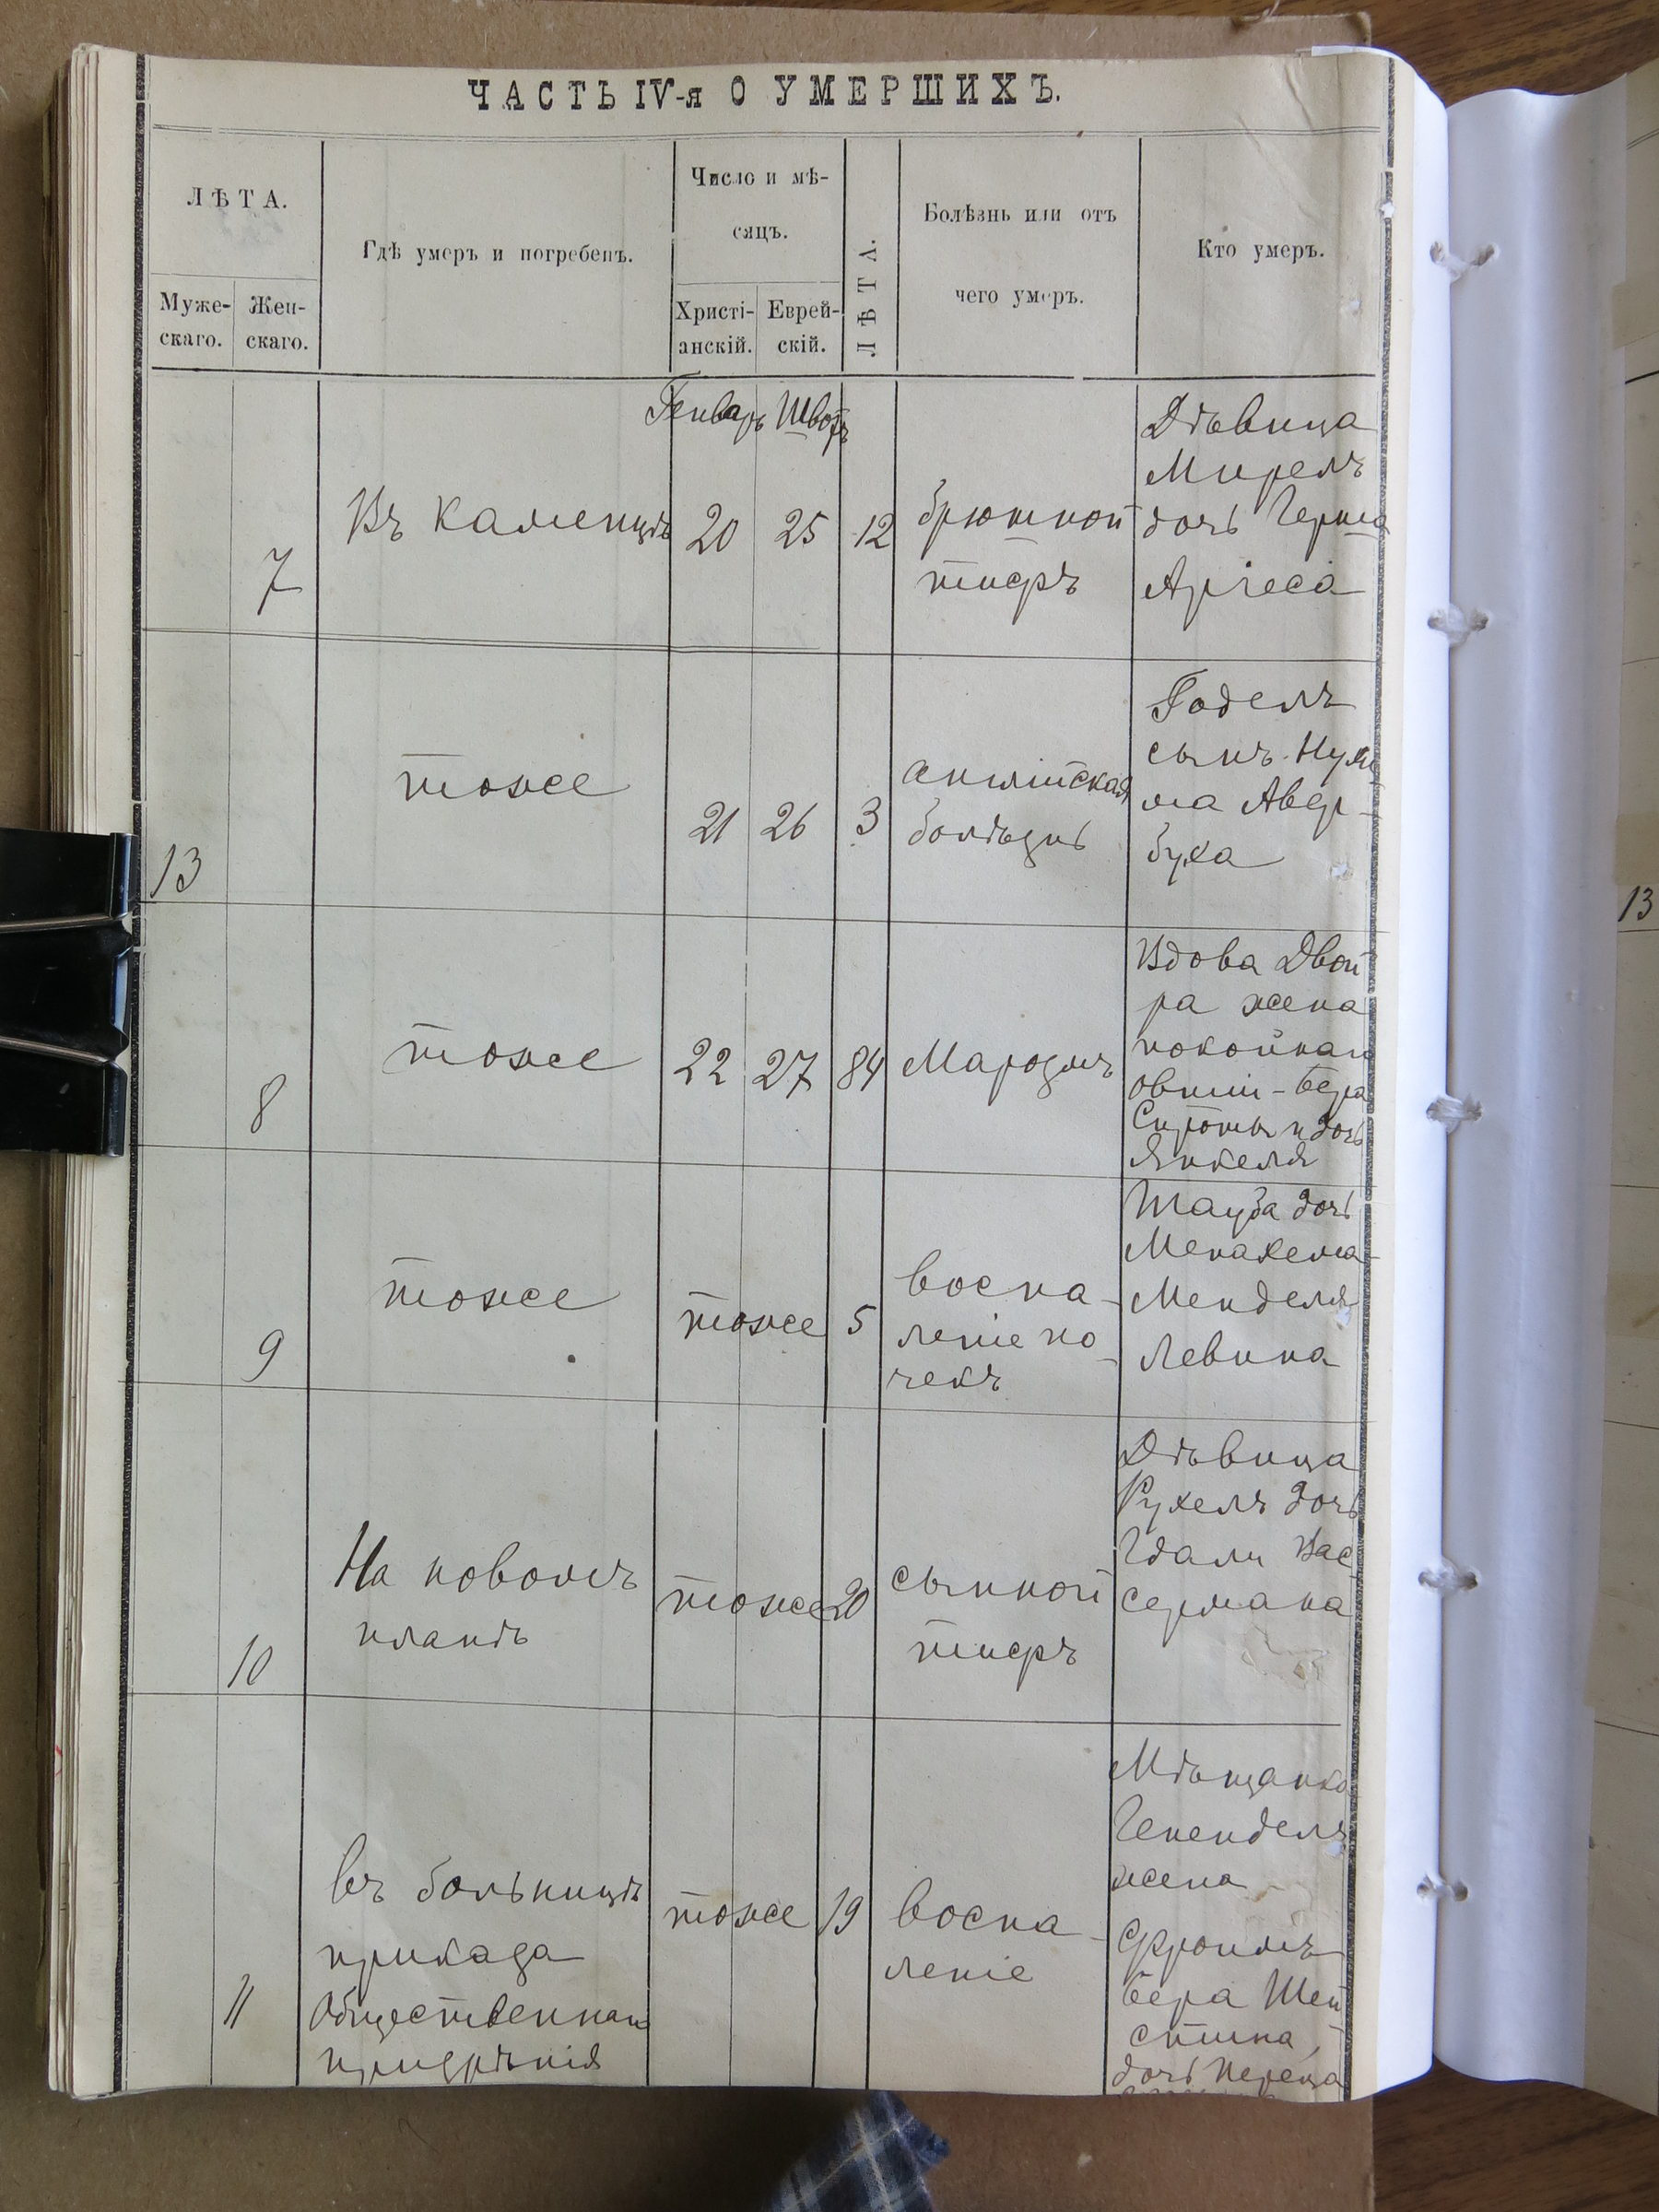 ЧАСТЬ IV-я О УМЕРШИХЪ.
ЛѢТА.
Муже-
скаго.
Жен-
скаго.
Гдѣ умеръ и погребенъ.
Число и мѣ-
сяцъ.
Христі-
анскій.
Еврей-
скій.
ЛѢТА.
Болѣзнь или отъ
чего умеръ.
Кто умеръ.
Генварь Швотъ
7
Въ Каменцѣ
20
25
12
брюшной
тифъ
Дѣвица
Мирелъ
дочь Герша
13
тоже
21
26
3
англійская
болѣзнь
Годель
сынъ Нухи
ма Авер-
буха
8
тоже
22
27
84
Маразмъ
Вдова Двой
ра жена
покойнаго
Овшii-Бера
Сироты и дочь
Янкеля
9
тоже
тоже
5
воспа-
леніе по-
чекъ
Тауба дочь
Менахема-
Менделя
Левина
10
На новомъ
планѣ
тоже
20
сыпной
тифъ
Дѣвица
Рухель дочь
Гдали Вас
сермана
11
въ больницѣ
приказа
Общественнаго
призрѣнія
тоже
19
воспа-
леніе
Мѣщанка
Гененделя
жена
Фроимъ
Бера Шей
нстина,
дочь Переца
13